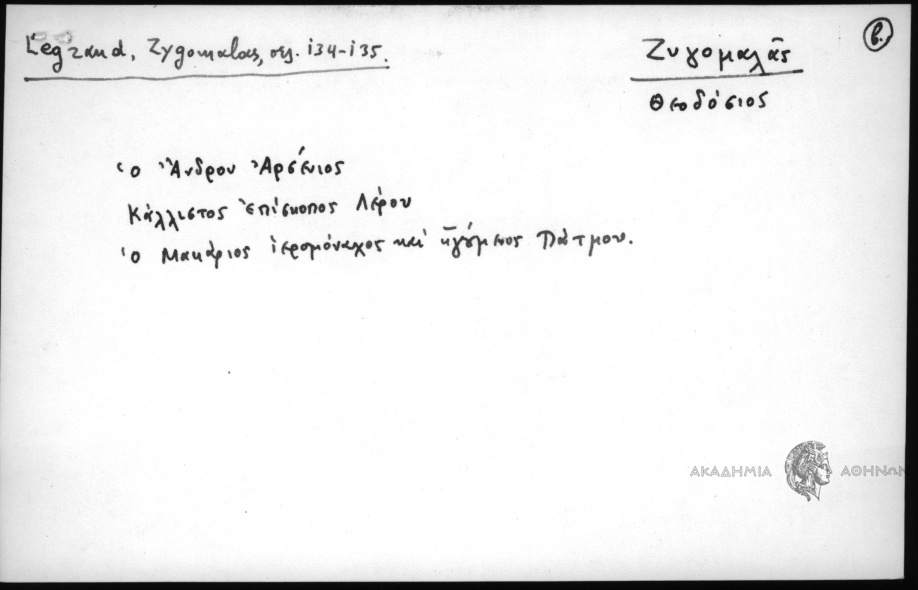 Legrand, Zygomalas, σελ. 134-135.
Ζυγομαλᾶς
β.
Θεοδόσιος
Ὁ Ἄνδρου Ἀρσένιος
Κάλλιστος Ἐπίσκοπος Λέρου
Ὁ Μακάριος ἱερομόναχος καὶ ἡγούμενος Πάτμου.
ΑΚΑΔΗΜΙΑ ΑΘΗΝΩΝ